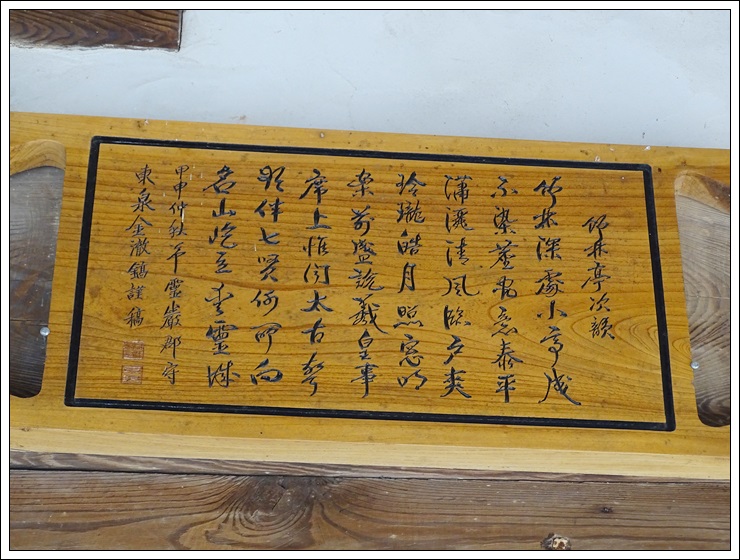 竹林亭次韻
竹林深處小亭成
不染意泰平
瀟灑清風臨戶爽
玲瓏皓月照窓明
案前盛說羲皇事
席上惟聞太古聲
伴七賢何所向
名山屹立靈誠
甲申仲秋節 靈巖郡守
東泉金澈鎬謹稿